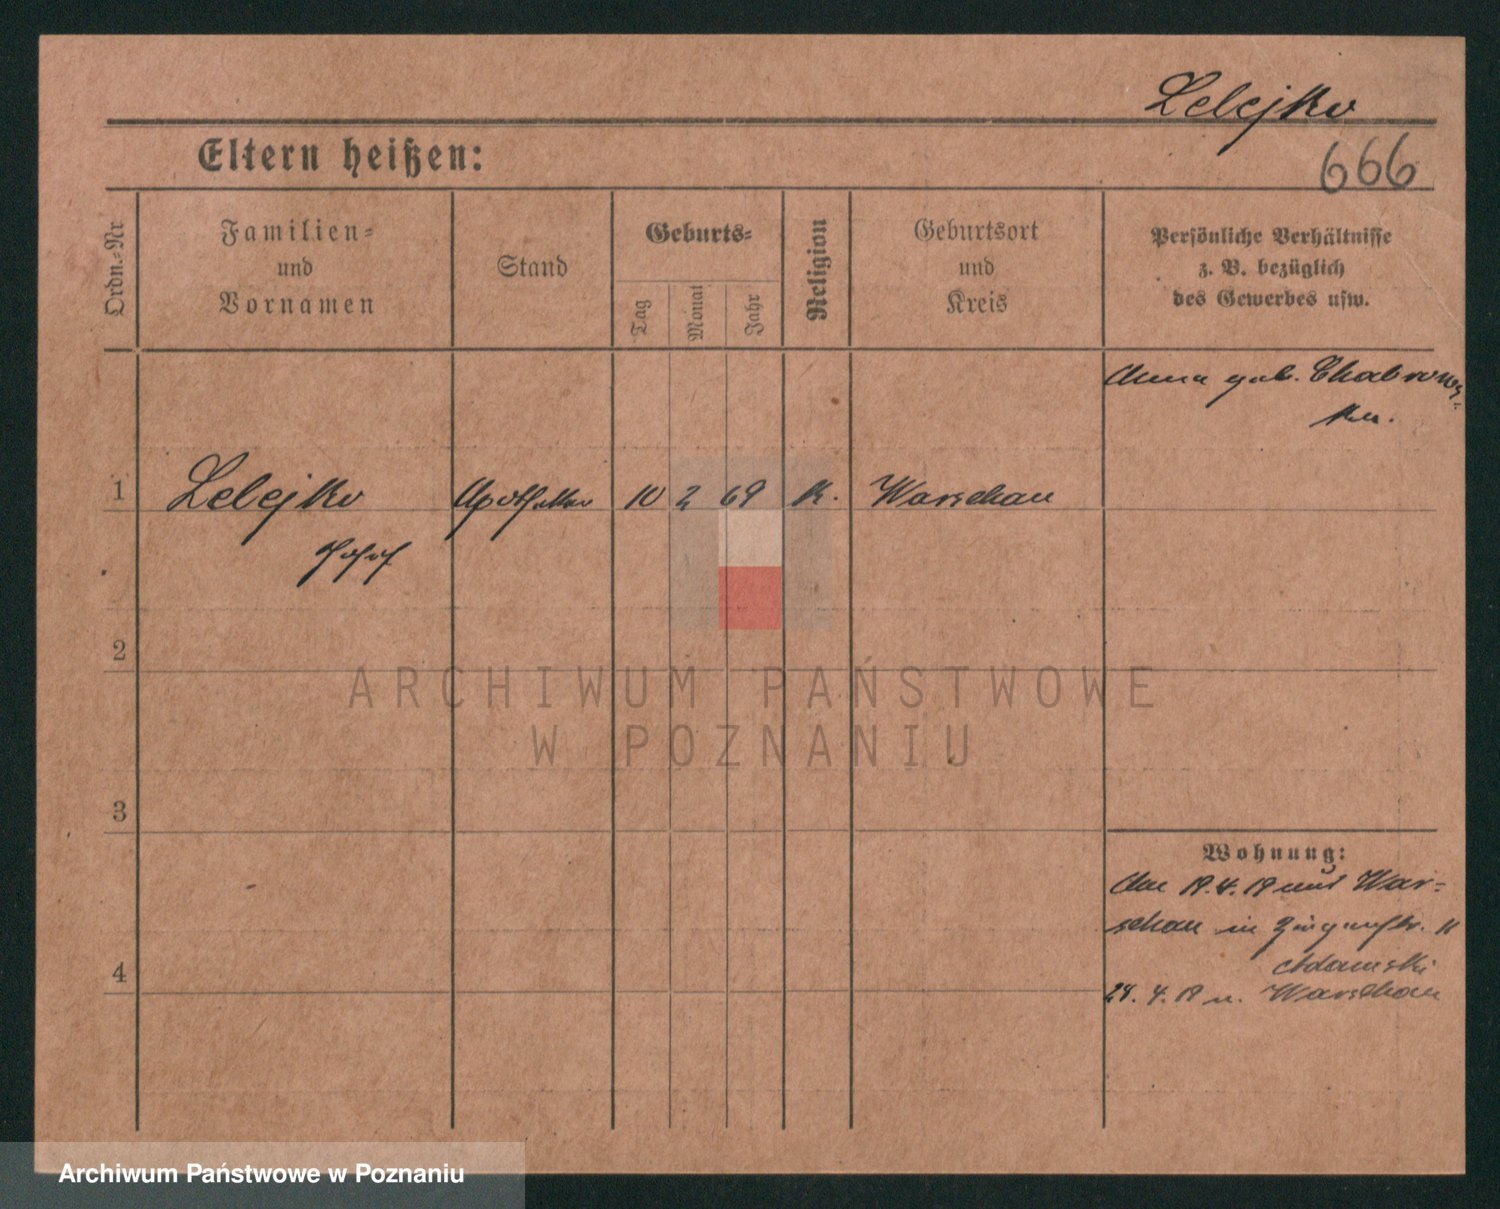 Lelejko
Eltern heißen:
666
Ordn.-Nr
Familien-
und
Vornamen
Stand
Geburts-
Tag
Monat
Jahr
Religion
Geburtsort
und
Kreis
Persönliche Verhältnisse
z. B. bezüglich
des Gewerbes usw.
Anna geb.
1 Lelejko Apotheker 10 2 69 K. Warschau
Josef
2
ARCHIWUM PAŃSTWOWE
W POZNANIU
3
Wohnung:
Am 19. 4. 19 aus War-
schau in 11
Adamski
28. 4. 19 n. Warschau
4
Archiwum Państwowe w Poznaniu